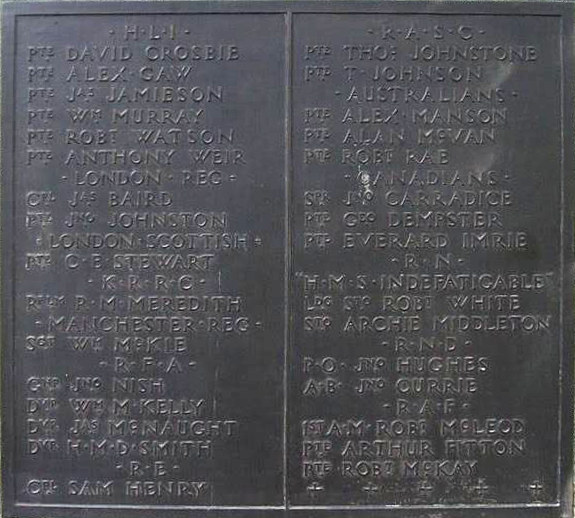 · H · L · I ·
PTE DAVID CROSBIE
PTE ALEX · GAW
PTE JAS JAMIESON
PTE WM MURRAY
PTE ROBT WATSON
PTE ANTHONY WEIR
· LONDON · REG ·
CPL JAS BAIRD
PTE JNO JOHNSTON
· LONDON · SCOTTISH ·
PTE C · E · STEWART
· K · R · R · C ·
RFLMN R · M · MEREDITH
· MANCHESTER · REG ·
SGT WM MCKIE
· R · F · A ·
GNR JNO NISH
DVR WM M · KELLY
DVR JAS MCNAUGHT
DVR H · M · D · SMITH
· R · E ·
CPL SAM HENRY
· R · A · S · C ·
PTE THOS JOHNSTONE
PTE T · JOHNSON
· AUSTRALIANS ·
PTE ALEX · MANSON
PTE ALAN MCVAN
PTE ROBT RAE
· CANADIANS ·
SPR JNO CARRADICE
PTE GEO DEMPSTER
PTE EVERARD IMRIE
· R · N ·
"H · M · S · INDEFATIGABLE"
LDG STO ROBT WHITE
STO ARCHIE MIDDLETON
· R · N · D ·
P · O · JNO HUGHES
A · B · JNO CURRIE
· R · A · F ·
1ST A · M · ROBT MCLEOD
PTE ARTHUR FITTON
PTE ROBT MCKAY